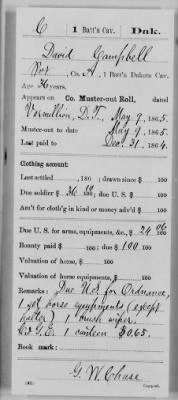 C | 1 Batt'n Cav. | Dak.
David Campbell
Pvt, Co. A, 1 Batt'n Dakota Cav.
Age 26 years.
Appears on Co. Muster-out Roll, dated
Vermillion, D.T., May 9, 1865.
Muster-out to date May 9, 1865.
Last paid to Dec. 31, 1864.
Clothing account:
Last settled, 186 ; drawn since $ 100
Due soldier $ 36 100; due U. S. $ 100
Am't for cloth'g in kind or money adv'd $ 100
Due U. S. for arms, equipments, &c., $ 24 06 100
Bounty paid $ 100; due $ 100 100
Valuation of horse, $ 100
Valuation of horse equipments, $ 100
Remarks: Due U.S. for Ordnance,
1 set horse equipments (except
halter) 1 brush wiper.
1 canteen $0.65.
Book mark:
G. W. Chase
Copyist.